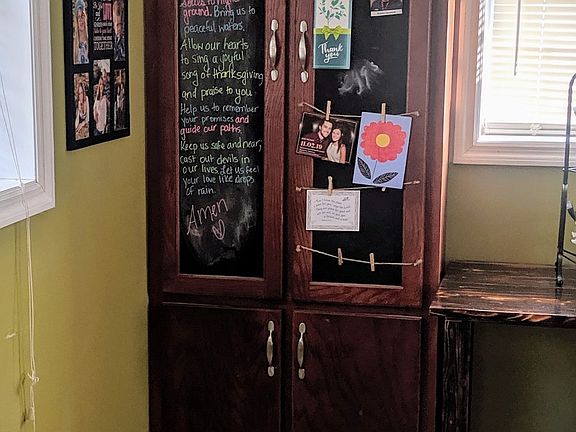 ground. Bring us to
peaceful waters.
Allow our hearts
to sing a joyful
song of thanksgiving
and praise to you.
Help us to remember
your promises and
guide our paths.
Keep us safe and near,
cast out devils in
our lives. Let us feel
your love like drops
of rain.
Amen
Thank
you
11.02.19
TOGETHER